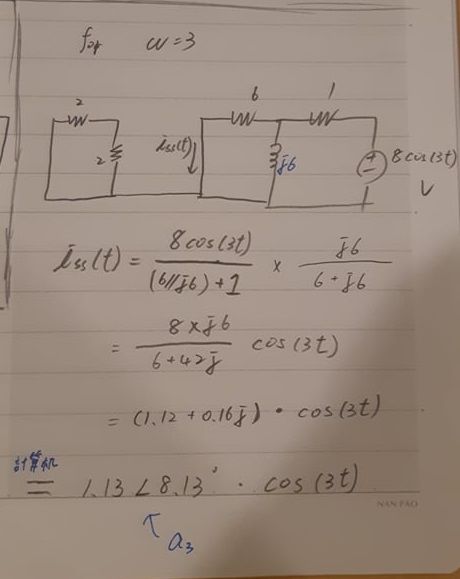 for ω=3
2
6
1
2
iss(t)
j6
+
−
8cos(3t)
V
iss(t) = 8cos(3t) / ((6//j6)+1) × j6 / (6+j6)
= 8×j6 / (6+42j) cos(3t)
= (1.12+0.16j)・cos(3t)
計算机
= 1.13∠8.13°・cos(3t)
↑
a3
NAN PAO